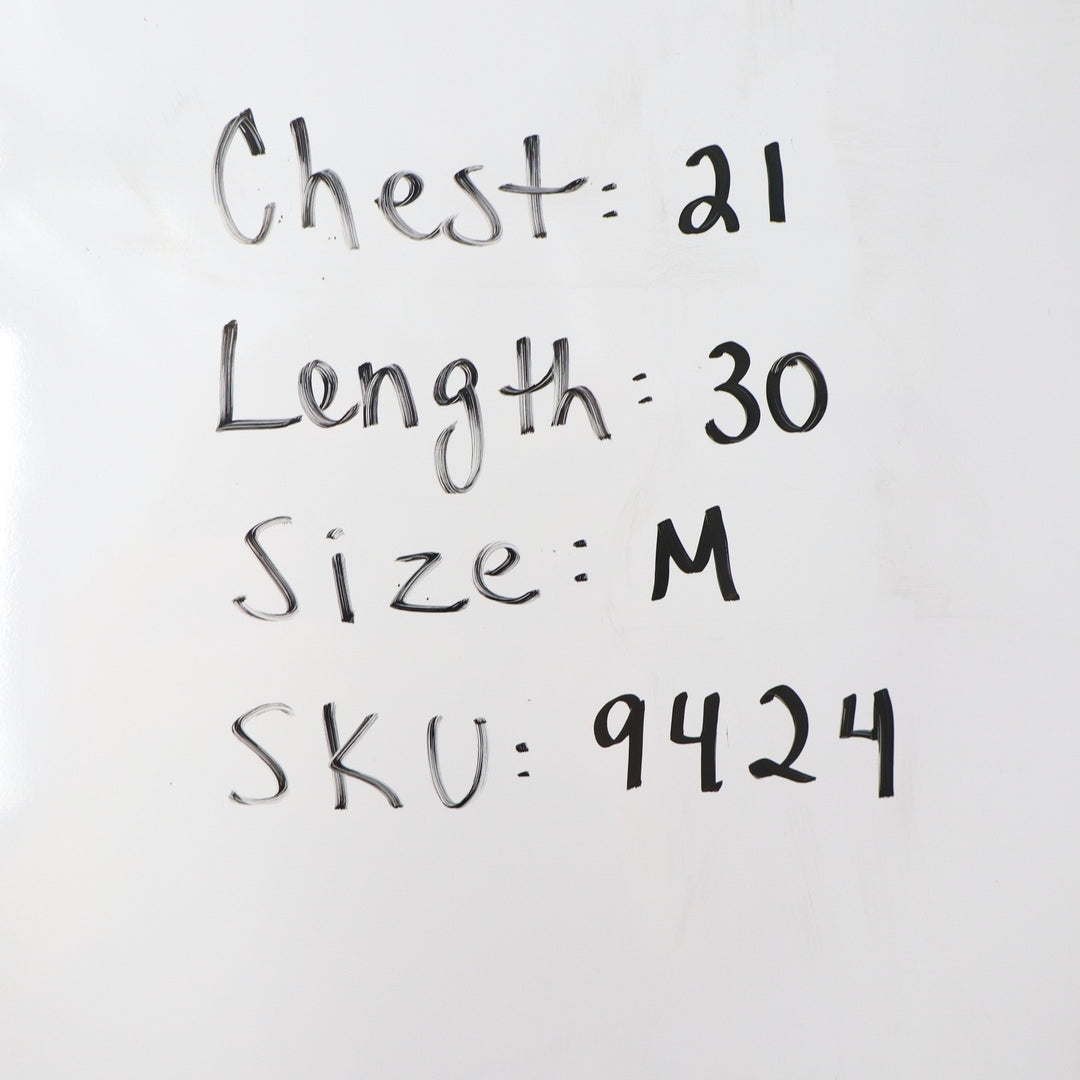 Chest: 21
Length: 30
Size: M
SKU: 9424